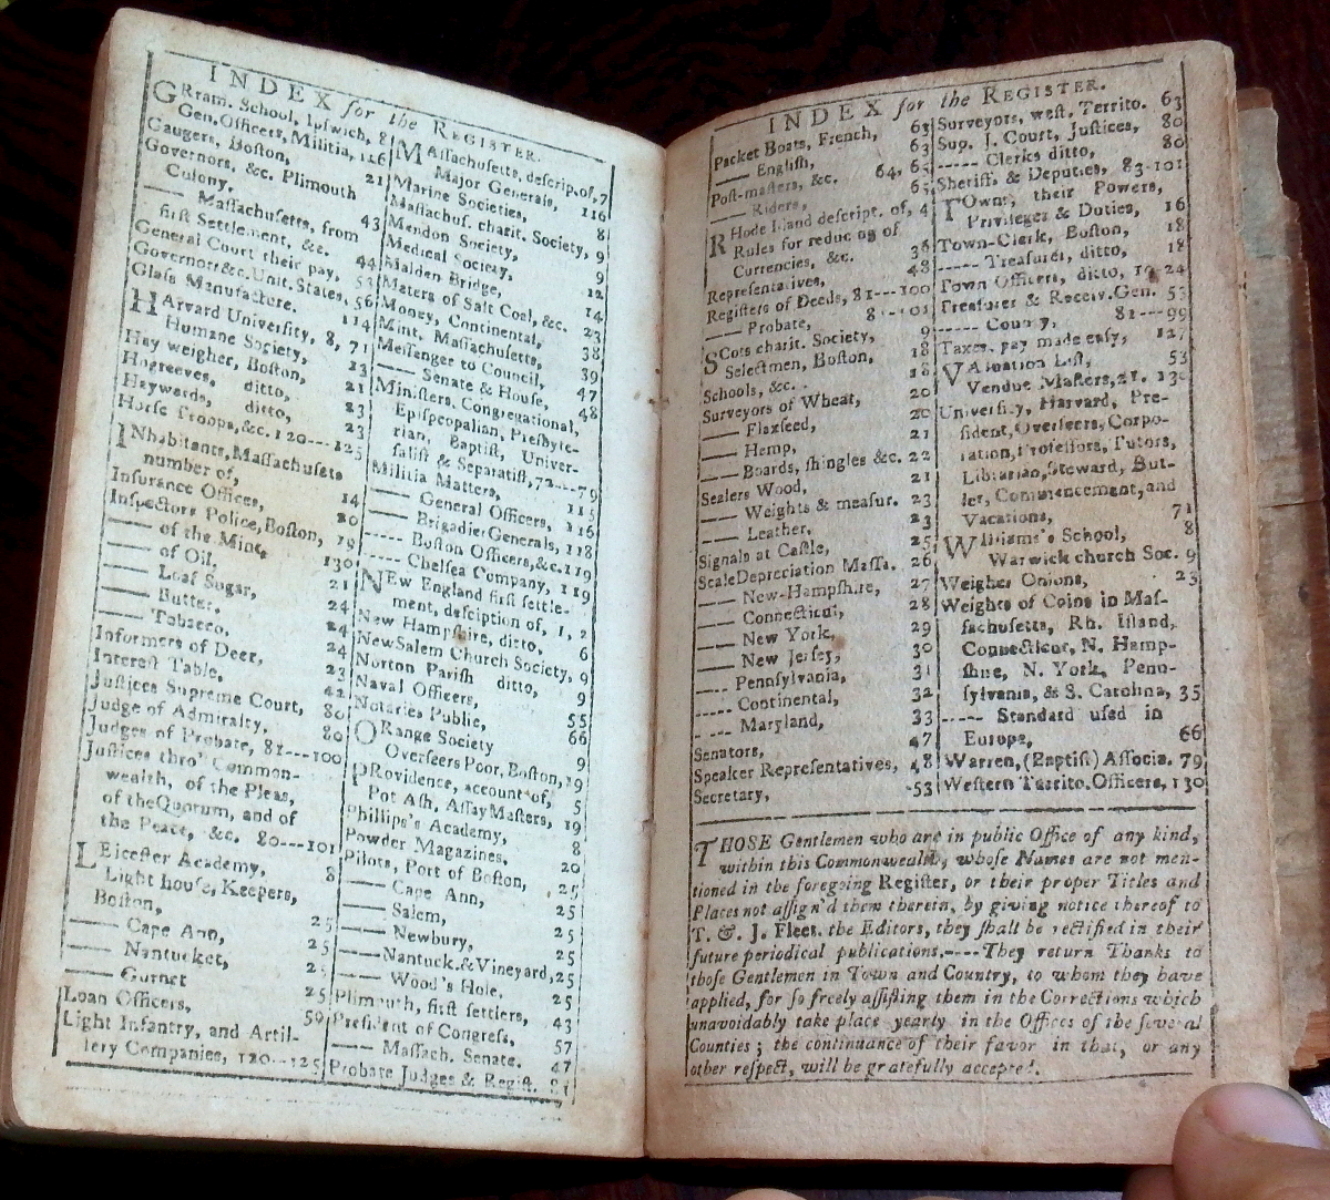 INDEX for the REGISTER.
GRram. School, Ipswich, 81
Gen. Officers, Militia, 116
Gaugers, Boston, 21
Governors, &c. Plimouth
Colony, 43
—— Massachusetts, from
first Settlement, &c. 44
General Court their pay, 53
Governors &c. Unit. States, 56
Glass Manufacture. 114
HArvard University, 8, 71
Humane Society, 13
Hay weigher, Boston, 21
Hogreeves, ditto, 23
Haywards, ditto, 23
Horse Troops, &c. 120---125
INhabitants, Massachusets
number of, 14
Insurance Offices, 20
Inspectors Police, Boston, 19
—— of the Mint, 130
—— of Oil, 21
—— Loaf Sugar, 24
—— Butter, 24
—— Tobacco, 24
Informers of Deer, 23
Interest Table, 42
Justices Supreme Court, 80
Judge of Admiralty, 80
Judges of Probate, 81---100
Justices thro' Common-
wealth, of the Pleas,
of the Quorum, and of
the Peace, &c. 80---101
LEicester Academy, 8
Light house, Keepers,
Boston, 25
—— Cape Ann, 25
—— Nantucket,
—— Gurnet 25
Loan Officers, 59
Light Infantry, and Artil-
lery Companies, 120---125
MAssachusetts, descrip. of, 7
Major Generals, 116
Marine Societies, 8
Massachus. charit. Society, 9
Mendon Society, 9
Medical Society, 9
Malden Bridge, 12
Maters of Salt Coal, &c. 14
Money, Continental, 23
Mint, Massachusetts, 38
Messenger to Council, 39
—— Senate & House, 47
Ministers, Congregational, 48
Episcopalian, Presbyte-
rian, Baptist, Univer-
salist & Separatist, 72---79
Militia Matters, 115
—— General Officers, 116
—— Brigadier Generals, 118
----- Boston Officers, &c. 119
----- Chelsea Company, 119
NEw England first settle-
ment, desciption of, 1, 2
New Hampshire, ditto, 6
New Salem Church Society, 9
Norton Parish ditto, 9
Naval Officers, 55
Notaries Public, 66
ORange Society 9
Overseers Poor, Boston, 19
PRovidence, account of, 5
Pot Ash, Assay Masters, 19
Phillips's Academy, 8
Powder Magazines, 20
Pilots, Port of Boston, 25
—— Cape Ann, 25
—— Salem, 25
—— Newbury, 25
—— Nantuck. & Vineyard, 25
—— Wood's Hole, 25
Plimouth, first settlers, 43
President of Congress, 57
—— Massach. Senate. 47
Probate Judges & Regist. 81
INDEX for the REGISTER.
Packet Boats, French, 63
—— English, 63
Post-masters, &c. 64, 65
—— Riders, 65
RHode Island descript. of, 4
Rules for reducing of
Currencies, &c. 36
Representatives, 48
Registers of Deeds, 81---100
—— Probate, 81---101
SCots charit. Society, 9
Selectmen, Boston, 18
Schools, &c. 18
Surveyors of Wheat, 20
—— Flaxseed, 20
—— Hemp, 21
—— Boards, shingles &c. 22
Sealers Wood, 21
—— Weights & measur. 23
—— Leather, 23
Signals at Castle, 25
Scale Depreciation Massa. 26
—— New-Hampshire, 27
—— Connecticut, 28
—— New York, 29
—— New Jersey, 30
---- Pennsylvania, 31
----- Continental, 32
---- Maryland, 33
Senators, 47
Speaker Representatives, 48
Secretary, 53
Surveyors, west. Territo. 63
Sup. J. Court, Justices, 80
----- Clerks ditto, 80
Sheriffs & Deputies, 83-101
TOwns, their Powers,
Privileges & Duties, 16
Town-Clerk, Boston, 18
----- Treasurer, ditto, 18
Town Officers, ditto, 19-24
Treasurer & Receiv. Gen. 53
----- County, 81---99
Taxes, pay made easy, 127
VAluation List, 53
Vendue Masters, 21. 130
University, Harvard, Pre-
sident, Overseers, Corpo-
ration, Professors, Tutors,
Librarian, Steward, But-
ler, Commencement, and
Vacations, 71
WIlliams's School, 8
Warwick church Soc. 9
Weigher Onions, 23
Weights of Coins in Mas-
sachusetts, Rh. Island,
Connecticut, N. Hamp-
shire, N. York, Penn-
sylvania, & S. Carolina, 35
----- Standard used in
Europe, 66
Warren, (Baptist) Associa. 79
Western Territo. Officers, 130
THOSE Gentlemen who are in public Office of any kind,
within this Commonwealth, whose Names are not men-
tioned in the foregoing Register, or their proper Titles and
Places not assign'd them therein, by giving notice thereof to
T. & J. Fleet. the Editors, they shall be rectified in their
future periodical publications.----They return Thanks to
those Gentlemen in Town and Country, to whom they have
applied, for so freely assisting them in the Corrections which
unavoidably take place yearly in the Offices of the several
Counties; the continuance of their favor in that, or any
other respect, will be gratefully accepted.